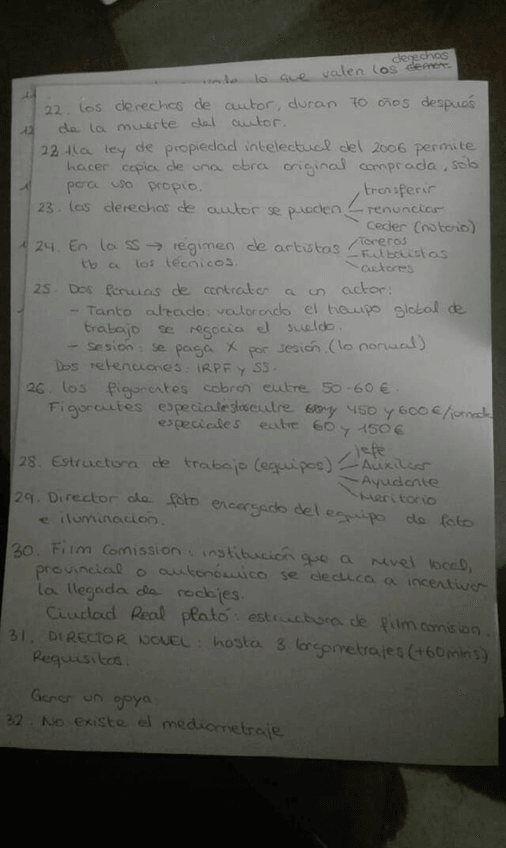 lo que valen los derechos
22. Los derechos de autor, duran 70 años después
de la muerte del autor.
23. La ley de propiedad intelectual del 2006 permite
hacer copia de una obra original comprada, sólo
para uso propio.
23. Los derechos de autor se pueden transferir
renunciar
ceder (notario)
24. En la SS → régimen de artistas Toreros
Futbolistas
actores
tb a los técnicos.
25. Dos formas de contratar a un actor:
- Tanto alzado: valorando el tiempo global de
trabajo se negocia el sueldo.
- Sesión: se paga X por sesión. (lo normal)
Dos retenciones: IRPF y SS.
26. Los figurantes cobran entre 50-60 €.
Figurantes especiales entre 450 y 600 €/jornada
especiales entre 60 y 150 €
28. Estructura de trabajo (equipos) Jefe
Auxiliar
Ayudante
Meritorio
29. Director de foto encargado del equipo de foto
e iluminación.
30. Film Comission: institución que a nivel local,
provincial o autonómico se dedica a incentivar
la llegada de rodajes.
Ciudad Real plató: estructura de film comision.
31. DIRECTOR NOVEL: hasta 3 largometrajes (+60mins)
Requisitos:
Ganar un goya
32. No existe el mediometraje